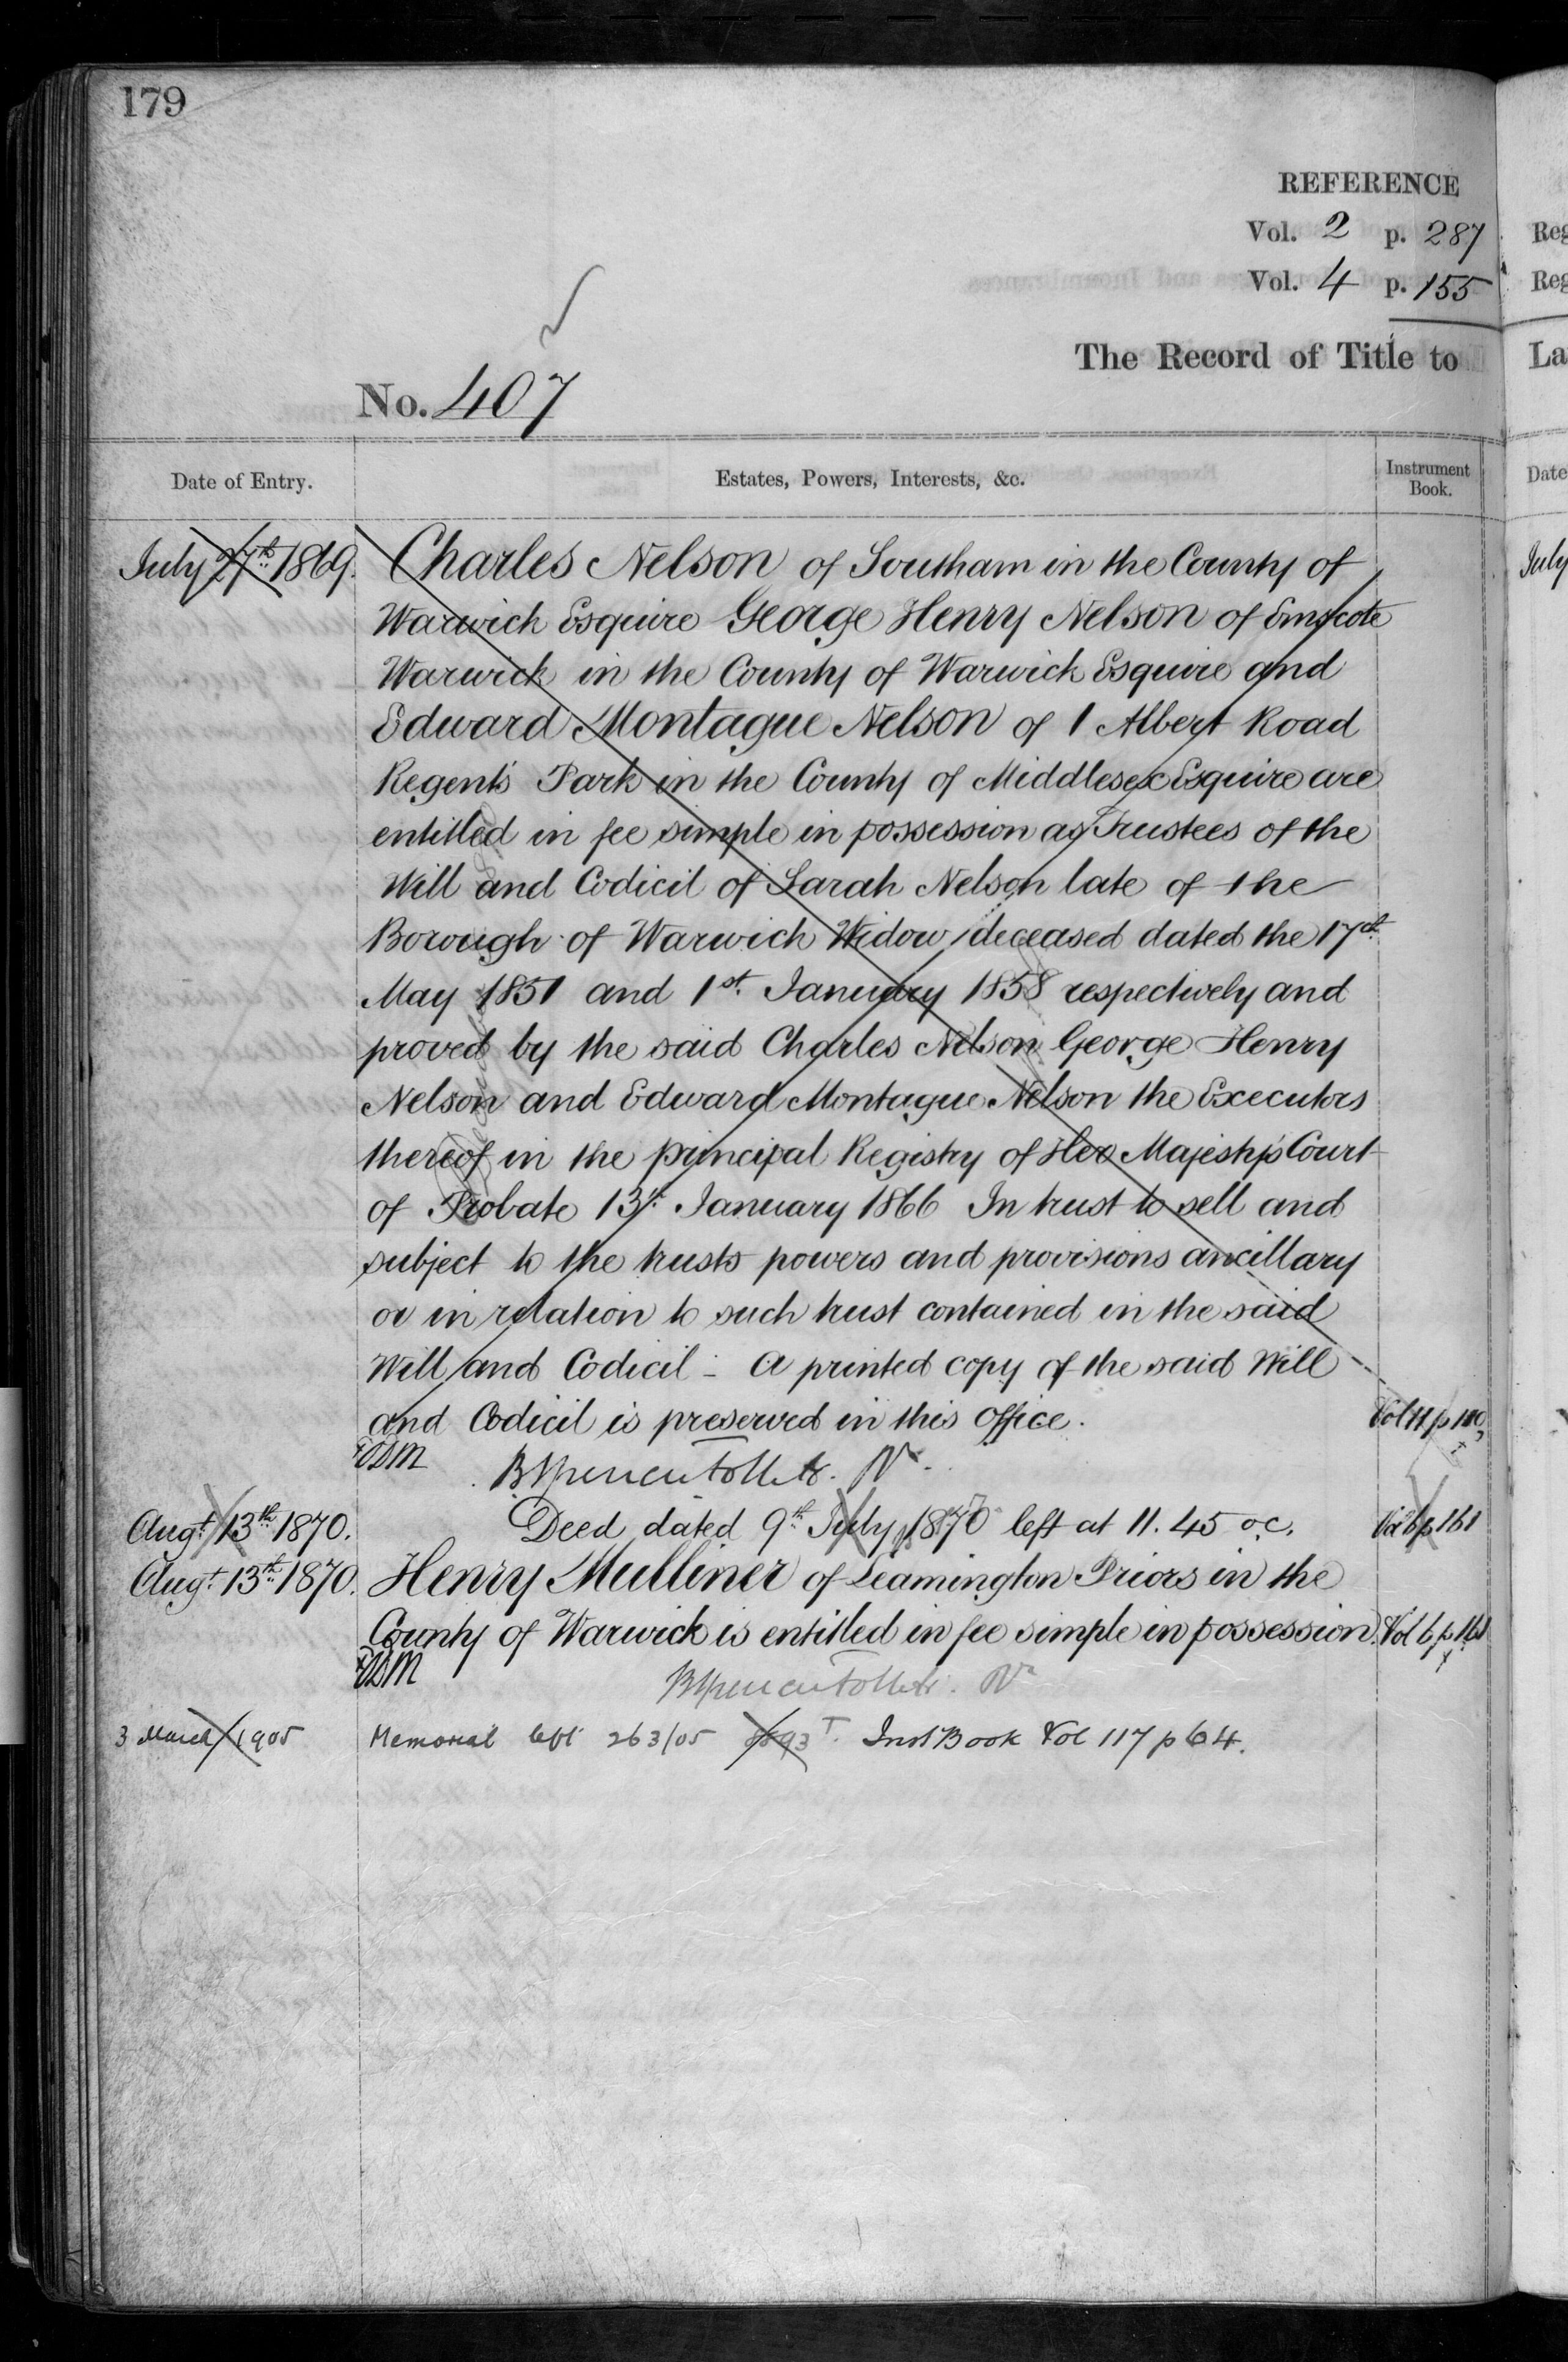 179
REFERENCE
Vol. 2 p. 287
Vol. 4 p. 155
The Record of Title to
No. 407
Date of Entry.
Estates, Powers, Interests, &c.
Instrument Book.
July 27th 1869.
Charles Nelson of Southam in the County of
Warwick Esquire George Henry Nelson of Emscote
Warwick in the County of Warwick Esquire and
Edward Montague Nelson of 1 Albert Road
Regent's Park in the County of Middlesex Esquire are
entitled in fee simple in possession as Trustees of the
Will and Codicil of Sarah Nelson late of the
Borough of Warwick Widow deceased dated the 17th
May 1851 and 1st January 1858 respectively and
proved by the said Charles Nelson George Henry
Nelson and Edward Montague Nelson the Executors
thereof in the principal Registry of Her Majesty's Court
of Probate 13th January 1866 In trust to sell and
subject to the trusts powers and provisions ancillary
or in relation to such trust contained in the said
Will and Codicil - A printed copy of the said Will
and Codicil is preserved in this Office.
Vol 11 p 100
Augt 13th 1870.
Deed dated 9th July 1870 left at 11.45 oc.
Vol 6 p 161
Augt 13th 1870.
Henry Mulliner of Leamington Priors in the
County of Warwick is entitled in fee simple in possession.
Vol 6 p 161
3 March 1905
Memorial left 263/05 Inst Book Vol 117 p 64.
Reg
Reg
La
Date
July